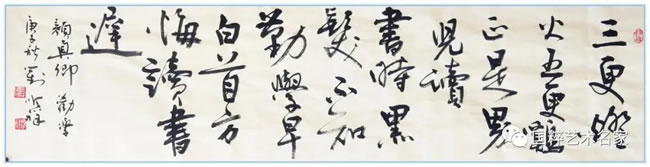 三更燈
火五更雞
正是男
児讀
書時黑
髮不知
勤學早
白首方
悔讀書
遲
顏真卿 勸學
庚子秋 劉
国粹艺术名家